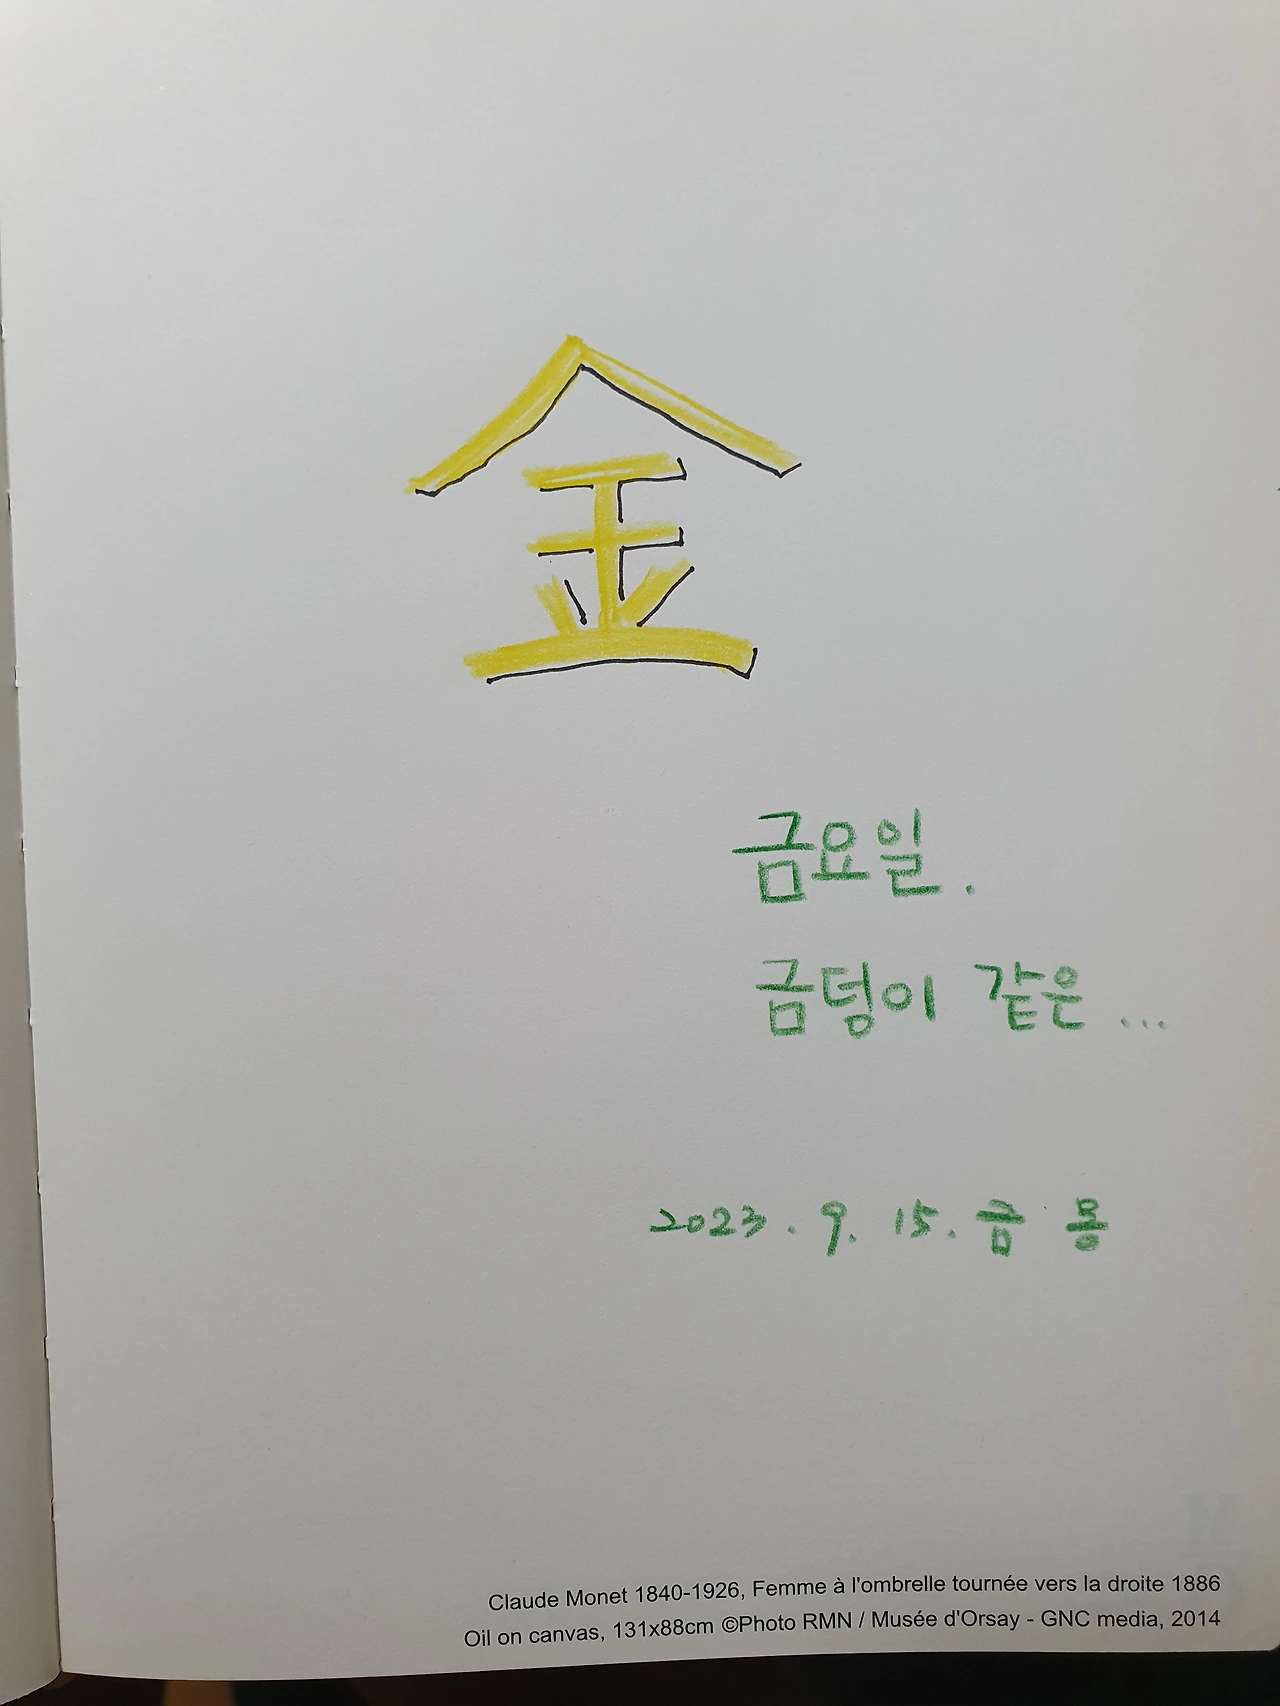 金
금요일.
금덩이 같은 ...
2023. 9. 15. 금 몽
Claude Monet 1840-1926, Femme à l'ombrelle tournée vers la droite 1886
Oil on canvas, 131x88cm ©Photo RMN / Musée d'Orsay - GNC media, 2014